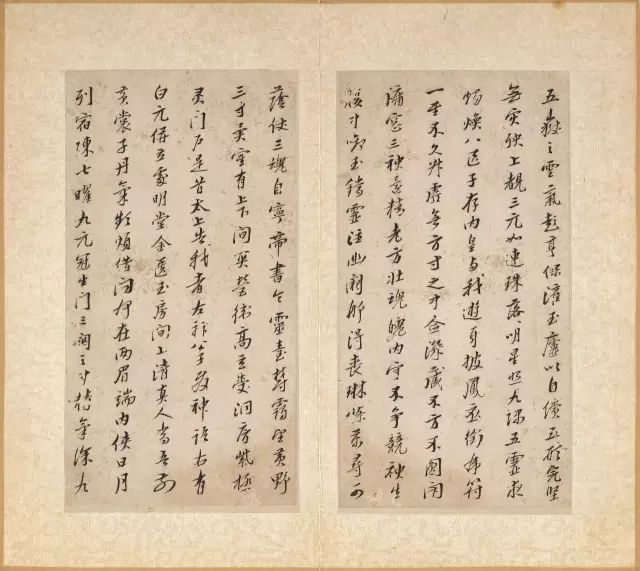 五嶽之雲氣彭亨保灌玉廬以自償五形完堅
無災殃上覩三元如連珠落明景照九隅五靈夜
燭煥八區子存内皇與我遊身披鳳衣銜虎符
一至不久升虛無方寸之中念深藏不方不圓閉
牖窓三神還精老方壯魂魄内守不爭競神生
腹中銜玉鐺靈注幽闕那得喪琳條萬尋可
蔭仗三魂自寧帝書命靈臺欝靄望黃野
三寸異室有上下間關營衛高玄受洞房紫極
灵門戶是昔太上告我者左神公子發神語右有
白元併立處明堂金匱玉房間上清真人當吾前
黃裳子丹氣頻煩借問何在兩眉端内俠日月
列宿陳七曜九元冠生門三關之中精氣深九